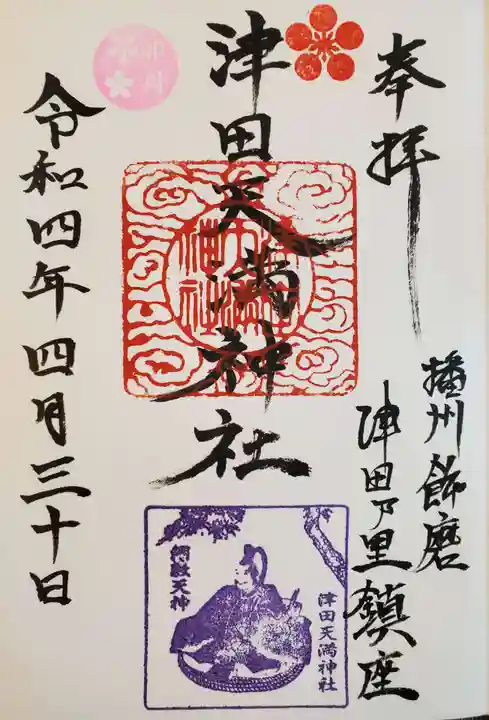 奉拝
播州飾磨
津田乃里鎮座
津田天満神社
令和四年四月三十日
卯月
綱敷天神
津田天満神社